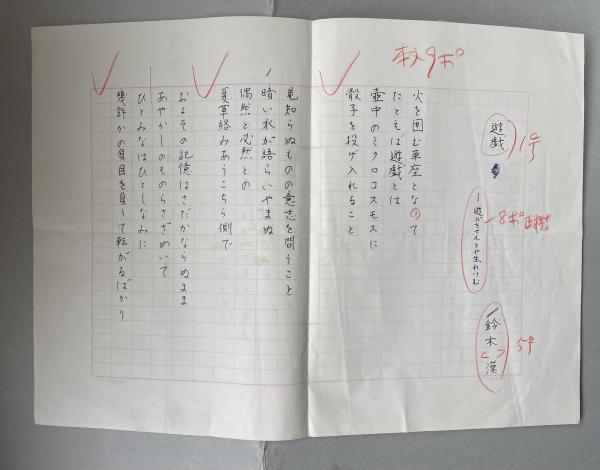 本文9ポ
遊戯
1号
―遊びをせんとや生れけむ
8ポ正楷書
鈴木漠
5号
火を囲む車座となつて
たとえば遊戯とは
壺中のミクロコスモスに
骰子を投げ入れること
見知らぬものの意志を問うこと
暗い水が語らいやまぬ
偶然と必然との
夏草絡みあうこちら側で
およその記憶はさだかならぬまま
あやかしのものらさざめいて
ひとみなはひとしなみに
幾許かの負目を負うて転がるばかり